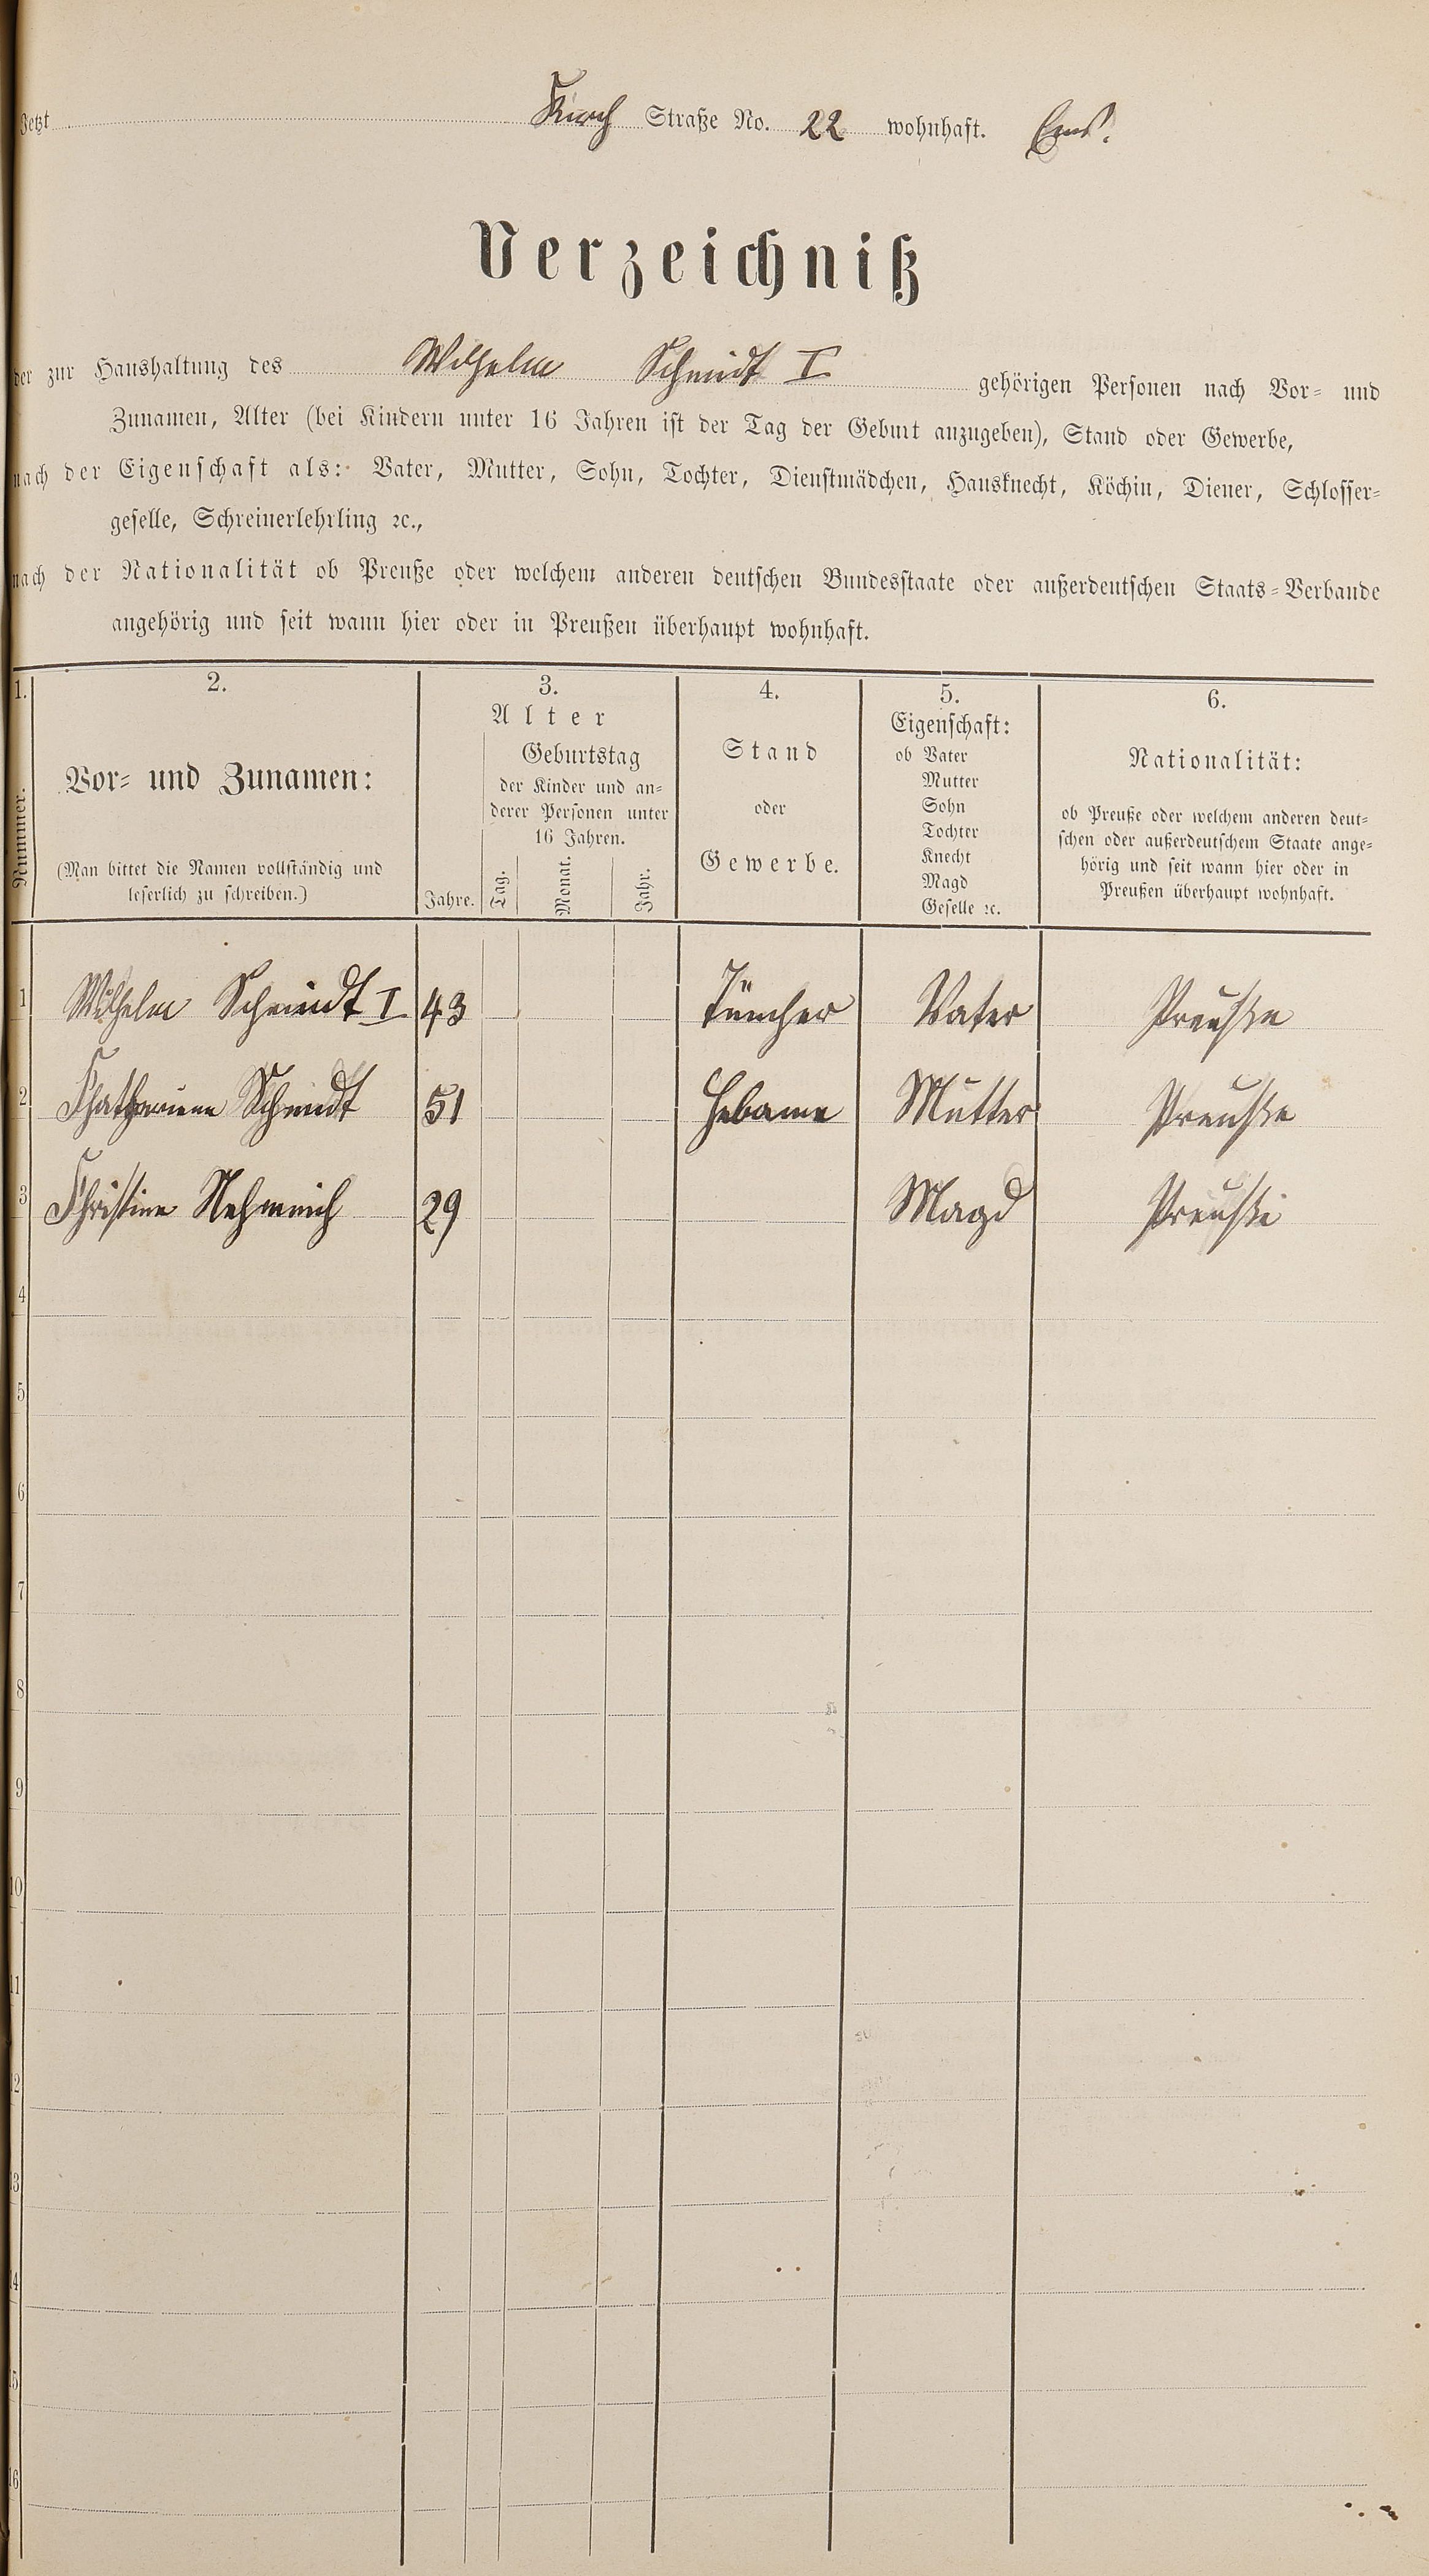 Jetzt Kirch Straße No. 22 wohnhaft. Ems.
Verzeichniß
der zur Haushaltung des Wilhelm Schmidt I gehörigen Personen nach Vor- und
Zunamen, Alter (bei Kindern unter 16 Jahren ist der Tag der Geburt anzugeben), Stand oder Gewerbe,
nach der Eigenschaft als: Vater, Mutter, Sohn, Tochter, Dienstmädchen, Hausknecht, Köchin, Diener, Schlosser-
geselle, Schreinerlehrling ꝛc.,
nach der Nationalität ob Preuße oder welchem anderen deutschen Bundesstaate oder außerdeutschen Staats-Verbande
angehörig und seit wann hier oder in Preußen überhaupt wohnhaft.
1.
Nummer.
2.
Vor- und Zunamen:
(Man bittet die Namen vollständig und
leserlich zu schreiben.)
3.
Alter
Jahre.
Geburtstag
der Kinder und an-
derer Personen unter
16 Jahren.
Tag. Monat. Jahr.
4.
Stand
oder
Gewerbe.
5.
Eigenschaft:
ob Vater
Mutter
Sohn
Tochter
Knecht
Magd
Geselle ꝛc.
6.
Nationalität:
ob Preuße oder welchem anderen deut-
schen oder außerdeutschem Staate ange-
hörig und seit wann hier oder in
Preußen überhaupt wohnhaft.
1 Wilhelm Schmidt I 43 Tüncher Vater Preuße
2 Chathariene Schmidt 51 Hebame Mutter Preuße
3 Christine 29 Magd Preuße
4
5
6
7
8
9
10
11
12
13
14
15
16